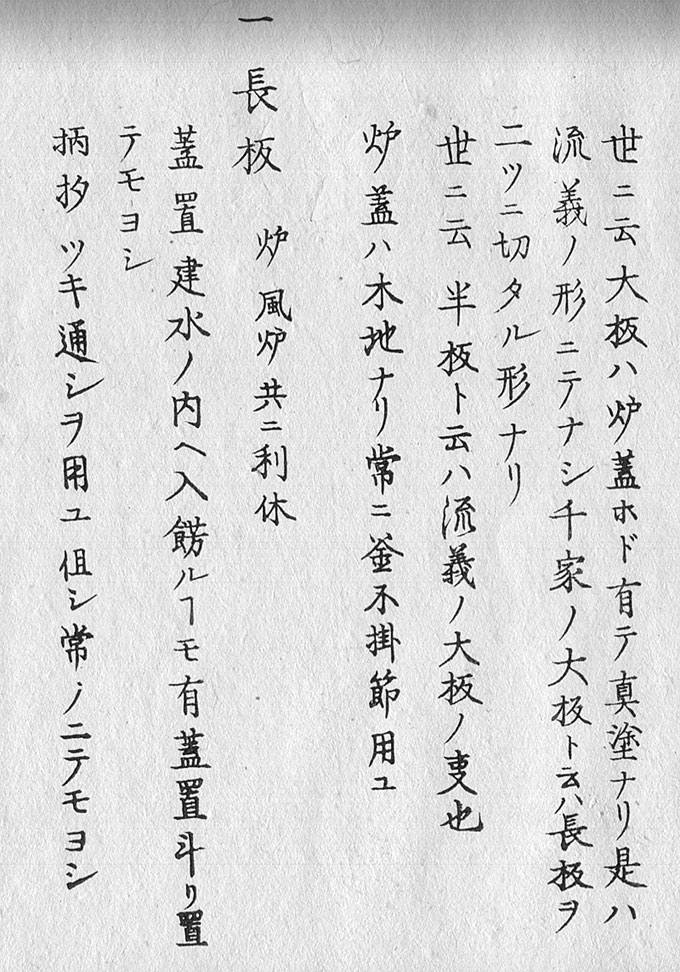 世ニ云大板ハ炉蓋ホド有テ真塗ナリ是ハ
流義ノ形ニテナシ千家ノ大板ト云ハ長板ヲ
二ツニ切タル形ナリ
世ニ云半板ト云ハ流義ノ大板ノ叓也
炉蓋ハ木地ナリ常ニ釜不掛節用ユ
一長板 炉風炉共ニ利休
蓋置建水ノ内ヘ入餝ルヿモ有蓋置斗リ置
テモヨシ
柄杓ツキ通シヲ用ユ伹シ常ノニテモヨシ